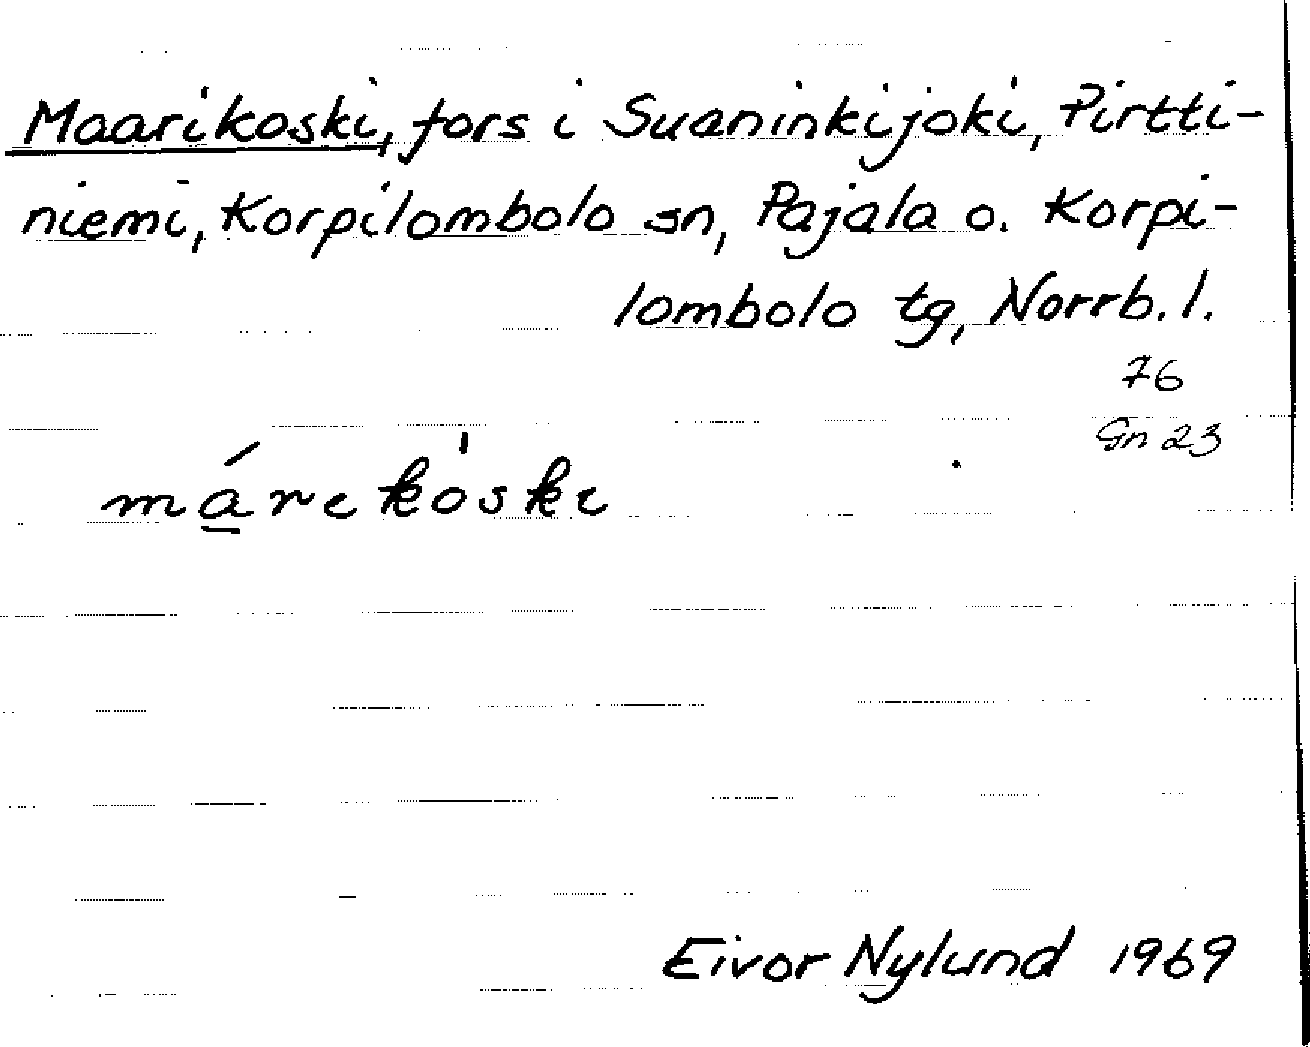 Maarikoski, fors i Suaninkijoki, Pirtti-
niemi, Korpilombolo sn, Pajala o. Korpi-
lombolo tg, Norrb. l.
76
Gn 23
má̱rekòski
Eivor Nylund 1969